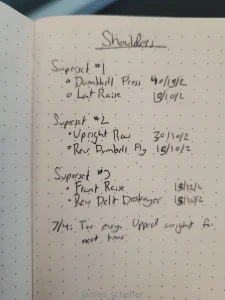 Shoulders
Superset #1
• Dumbbell Press 40/15/2
• Lat Raise 15/10/2
Superset #2
• Upright Row 30/10/2
• Rev. Dumbbell Fly 15/10/2
Superset #3
• Front Raise 15/12/2
• Rev Delt Destroyer 15/10/2
7/4: Too easy. Upped weight for
next time.
james scheffer